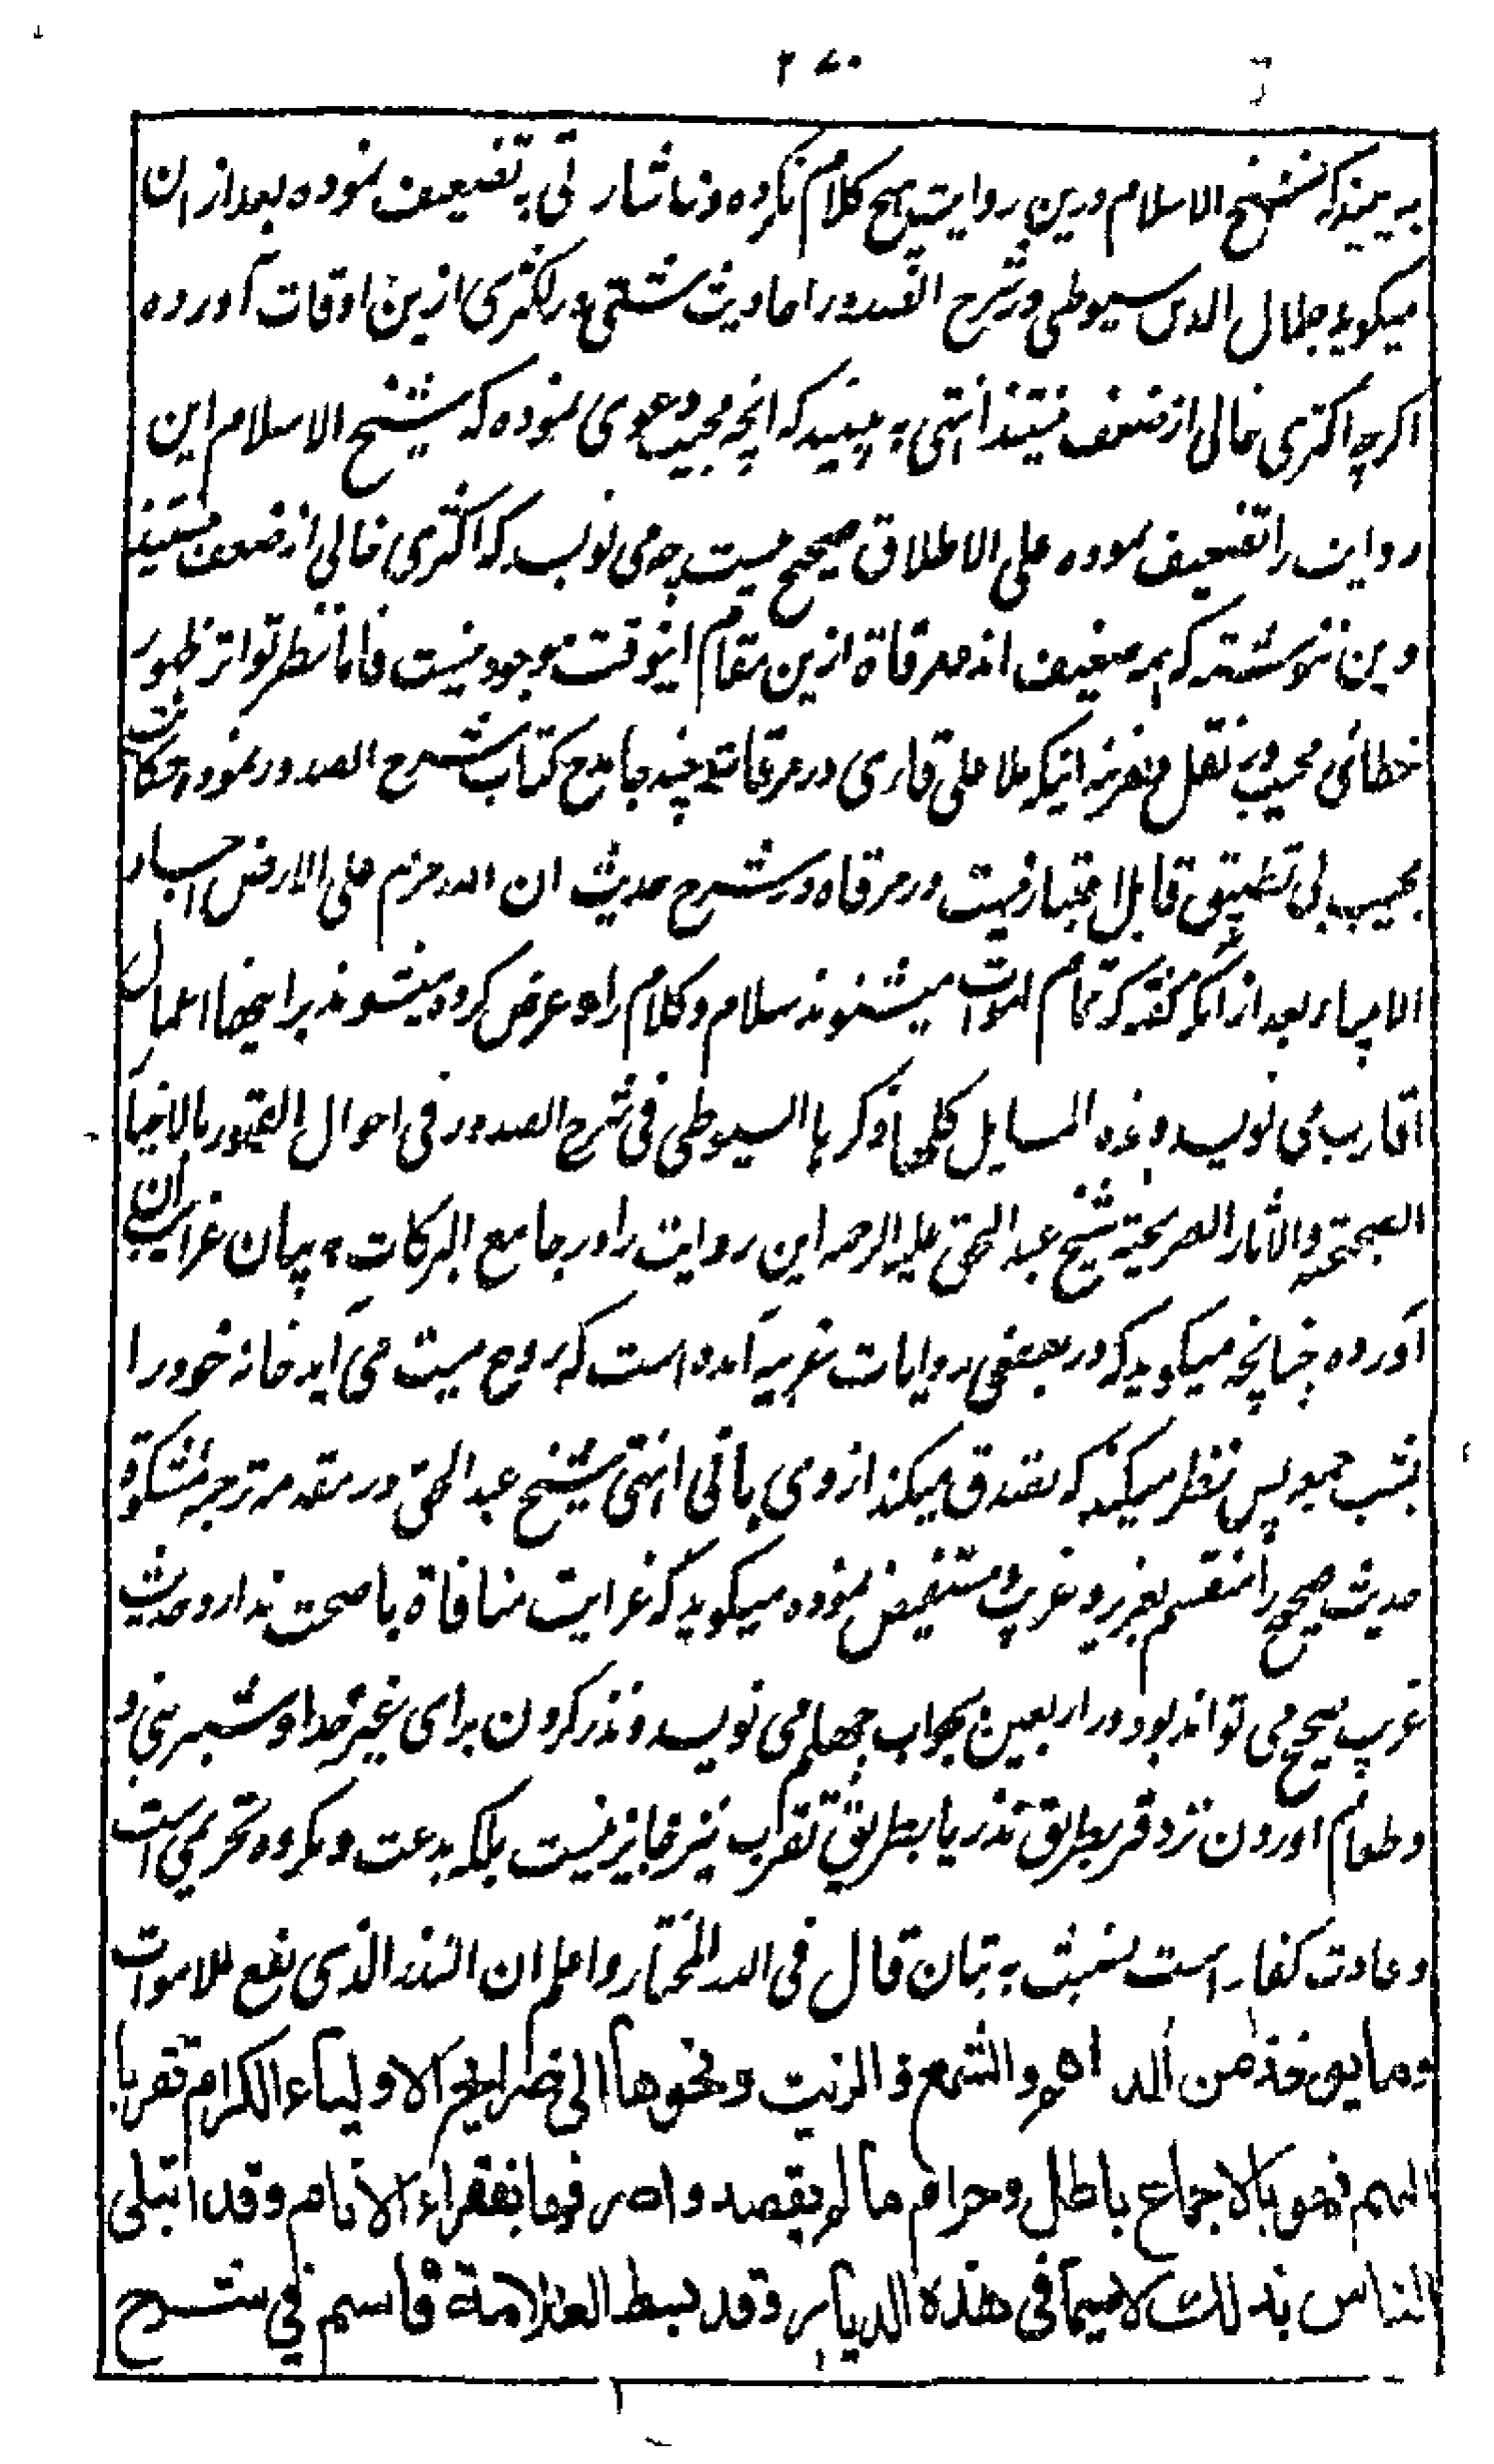 ۲۷۰
به بینید که شیخ الاسلام درین روایت هیچ کلام نکرده و نه اشارتی به تضعیف نموده بعد ازان
میگوید جلال الدین سیوطی در شرح الصدور احادیث شتی در اکثری ازین اوقات آورده
اگرچه اکثری خالی از ضعف نیستند انتهی به بینید که انچه مجیب دعوی نموده که شیخ الاسلام این
روایت را تضعیف نموده علی الاطلاق صحیح نیست چه می نویسد که اکثری خالی از ضعف نیستند
و این ننوشته که همه ضعیف اند مرقاة ازین مقام اینوقت موجود نیست فاما نظر تواتر ظهور
خطائی مجیب در نقل و نیز اینکه ملا علی قاری در مرقات چند جا مدح کتاب شرح الصدور نموده
مجیب بی تطبیق قابل اعتبار نیست در مرقاه در شرح حدیث ان الله حرم علی الارض اجساد
الانبیاء بعد از انکه گفته که تمام اموات میشنوند سلام و کلام را و عرض کرده میشوند برایشان اعمال
اقارب می نویسد و هذه المسایل کلها ذکرها السیوطی فی شرح الصدور فی احوال القبور بالاخبار
الصحیحة والاثار الصریحة شیخ عبد الحق علیه الرحمه این روایت را در جامع البرکات به بیان غرایب آن
آورده چنانچه میگوید که در بعضی روایات غریبه آمده است که روح میت می آید خانه خود را
بشب جمعه پس نظر میکند که تصدق میکند از وی یا نی انتهی شیخ عبد الحق در مقدمه ترجمه مشکوة
حدیث صحیح را منقسم بعزیز و غریب و مستفیض نموده میگوید که غرابت منافاة با صحت ندارد و حدیث
غریب صحیح می تواند بود در اربعین بجواب چهلم می نویسد و نذر کردن برای غیر خدا و شیرینی و
و طعام آوردن نزد قبر بطریق نذر یا بطریق تقرب نیز جایز نیست بلکه بدعت و مکروه تحریمی است
و عادت کفار است نسبت به بتان قال فی الدر المختار و اعلم ان النذر الذی یقع للاموات
وما یوخذ من الدراهم والشمع والزیت ونحوها الی ضرایح الاولیاء الکرام تقربا
الیهم فهو بالاجماع باطل وحرام ما لم یقصدوا صرفها بفقراء الانام وقد ابتلی
الناس بذلک لاسیما فی هذه الدیار وقد بسط العلامة قاسم فی شرح